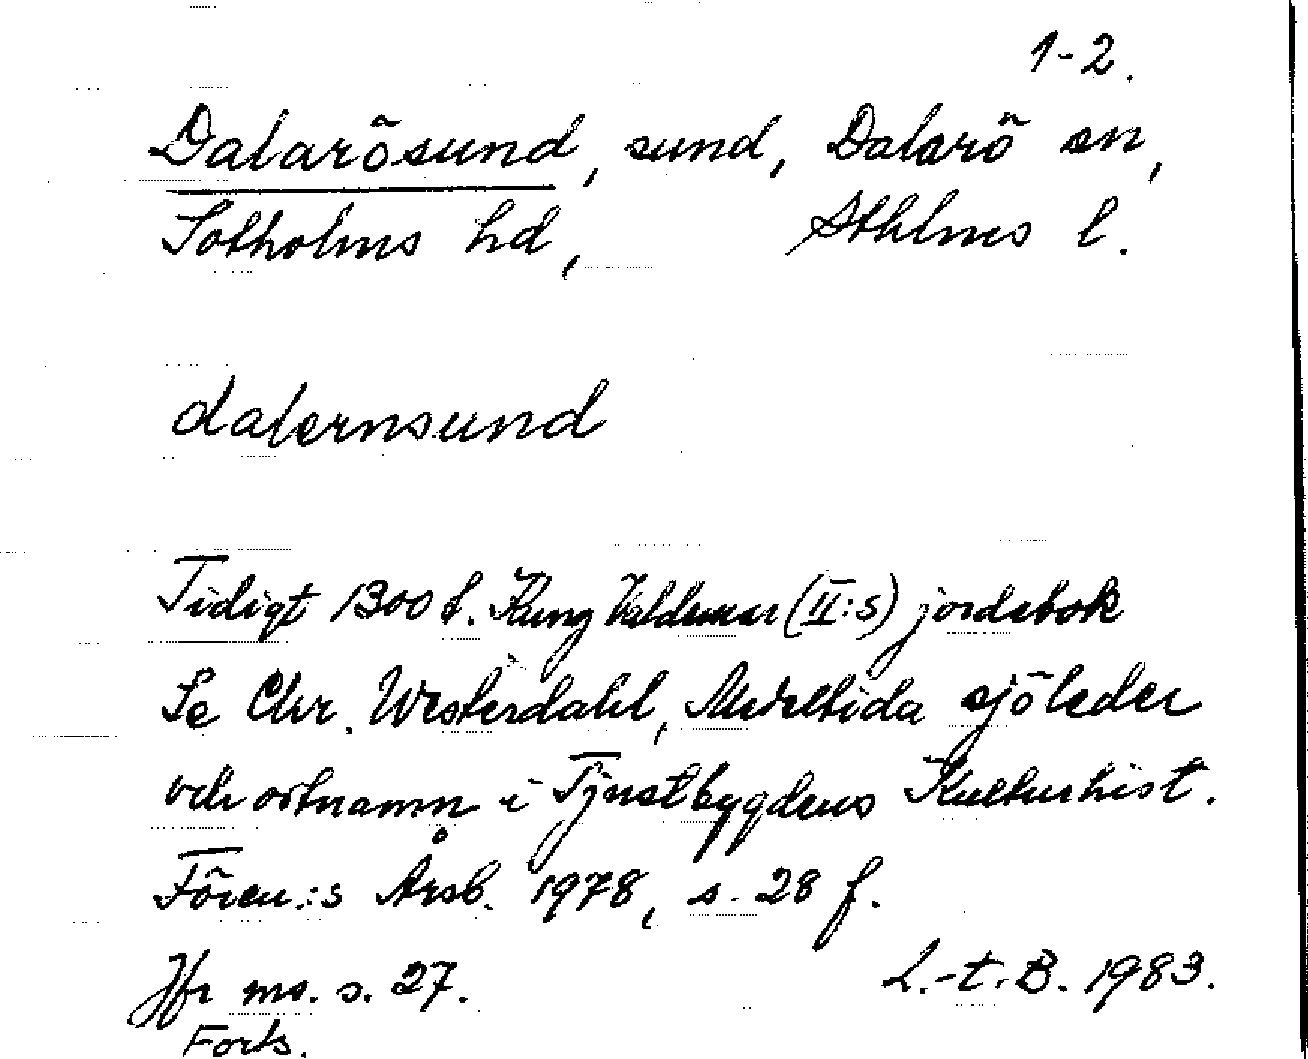 1-2.
Dalarösund, sund, Dalarö sn,
Sotholms hd, Sthlms l.
dalernsund
Tidigt 1300 t. Kung Valdemar (II:s) jordebok
Se Chr. Westerdahl, Medeltida sjöleder
och ortnamn i Tjustbygdens Kulturhist.
Fören:s Årsb. 1978, s. 28 f.
Jfr ms. s. 27. L.-t. B. 1983.
Forts.